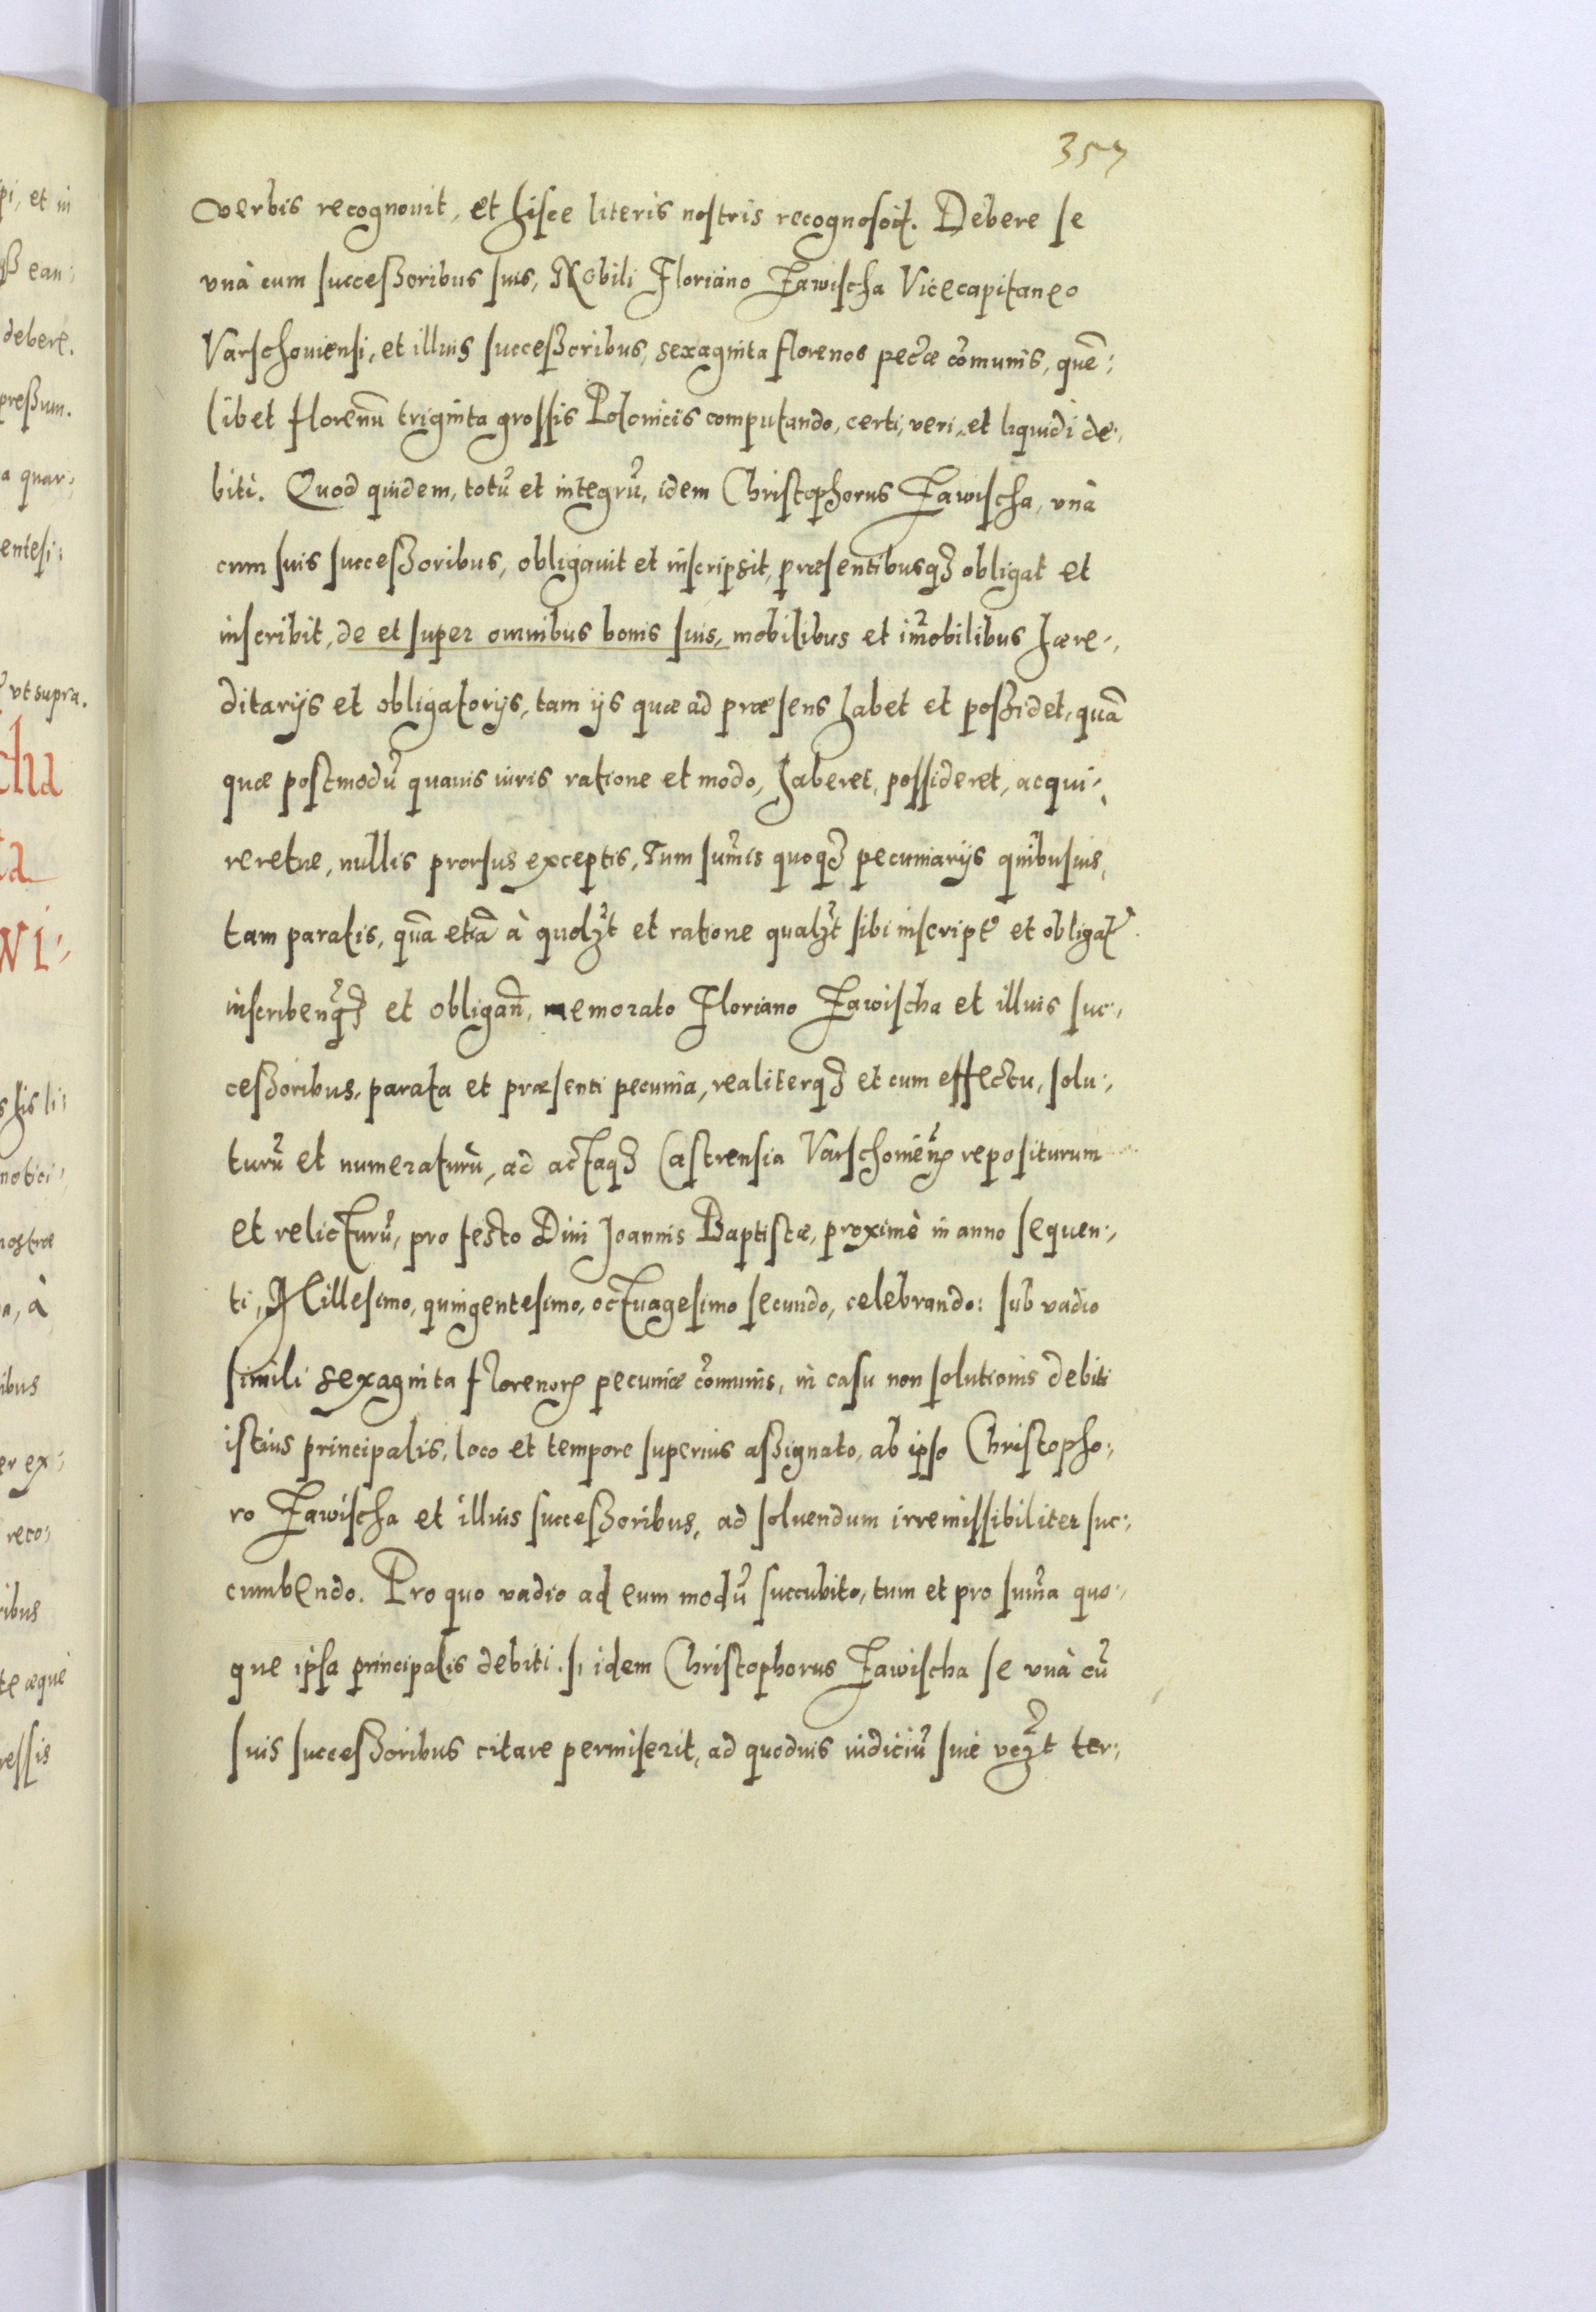 357
verbis recognouit, et hisce literis nostris recognoscit. Debere se
vnà cum successoribus suis, Nobili Floriano Zawischa Vicecapitaneo
Varschouiensi, et illius successoribus, sexaginta florenos pecūæ cōmunis, quē-
libet florenū triginta grossis Polonicis computando, certi, veri, et liquidi de-
biti. Quod quidem, totū et integrū, idem Christophorus Zawischa, vnà
cum suis successoribus, obligauit et inscripsit, præsentibusq꜄ obligat et
inscribit, de et super omnibus bonis suis, mobilibus et im̄obilibus hære-
ditarijs et obligatorijs, tam ijs quæ ad præsens habet et possidet, quā
quæ postmodū quauis iuris ratione et modo, haberet, possideret, acqui-
reretue, nullis prorsus exceptis, Tum sum̄is quoq꜄ pecuniarijs quibusuis,
tam paratis, quā etiā à quolꝫt et ratione qualꝫt sibi inscript̄ et obligat̄
inscribenq꜄ et obligan̄, memorato Floriano Zawischa et illius suc-
cessoribus, parata et præsenti pecunia, realiterq꜄ et cum effectu, solu-
turū et numeraturū, ad actaq꜄ Castrensia Varschouień repositurum
et relicturū, pro festo Diui Joannis Baptistæ, proximè in anno sequen-
ti, Millesimo, quingentesimo, octuagesimo secundo, celebrando: sub vadio
simili sexaginta florenorꝝ pecuniæ cōmunis, in casu non solutionis debiti
istius principalis, loco et tempore superius assignato, ab ipso Christopho-
ro Zawischa et illius successoribus, ad soluendum irremissibiliter suc-
cumbendo. Pro quo vadio ad eum modū succubito, tum et pro sum̄a quo-
que ipsa principalis debiti. si idem Christophorus Zawischa se vnà cū
suis successoribus citare permiserit, ad quoduis iudiciū siue ter-
pi, et in
debere.
pressum.
a quar-
entesi-
vt supra.
wi-
notici-
ibus
er ex-
reco-
ribus
æquè